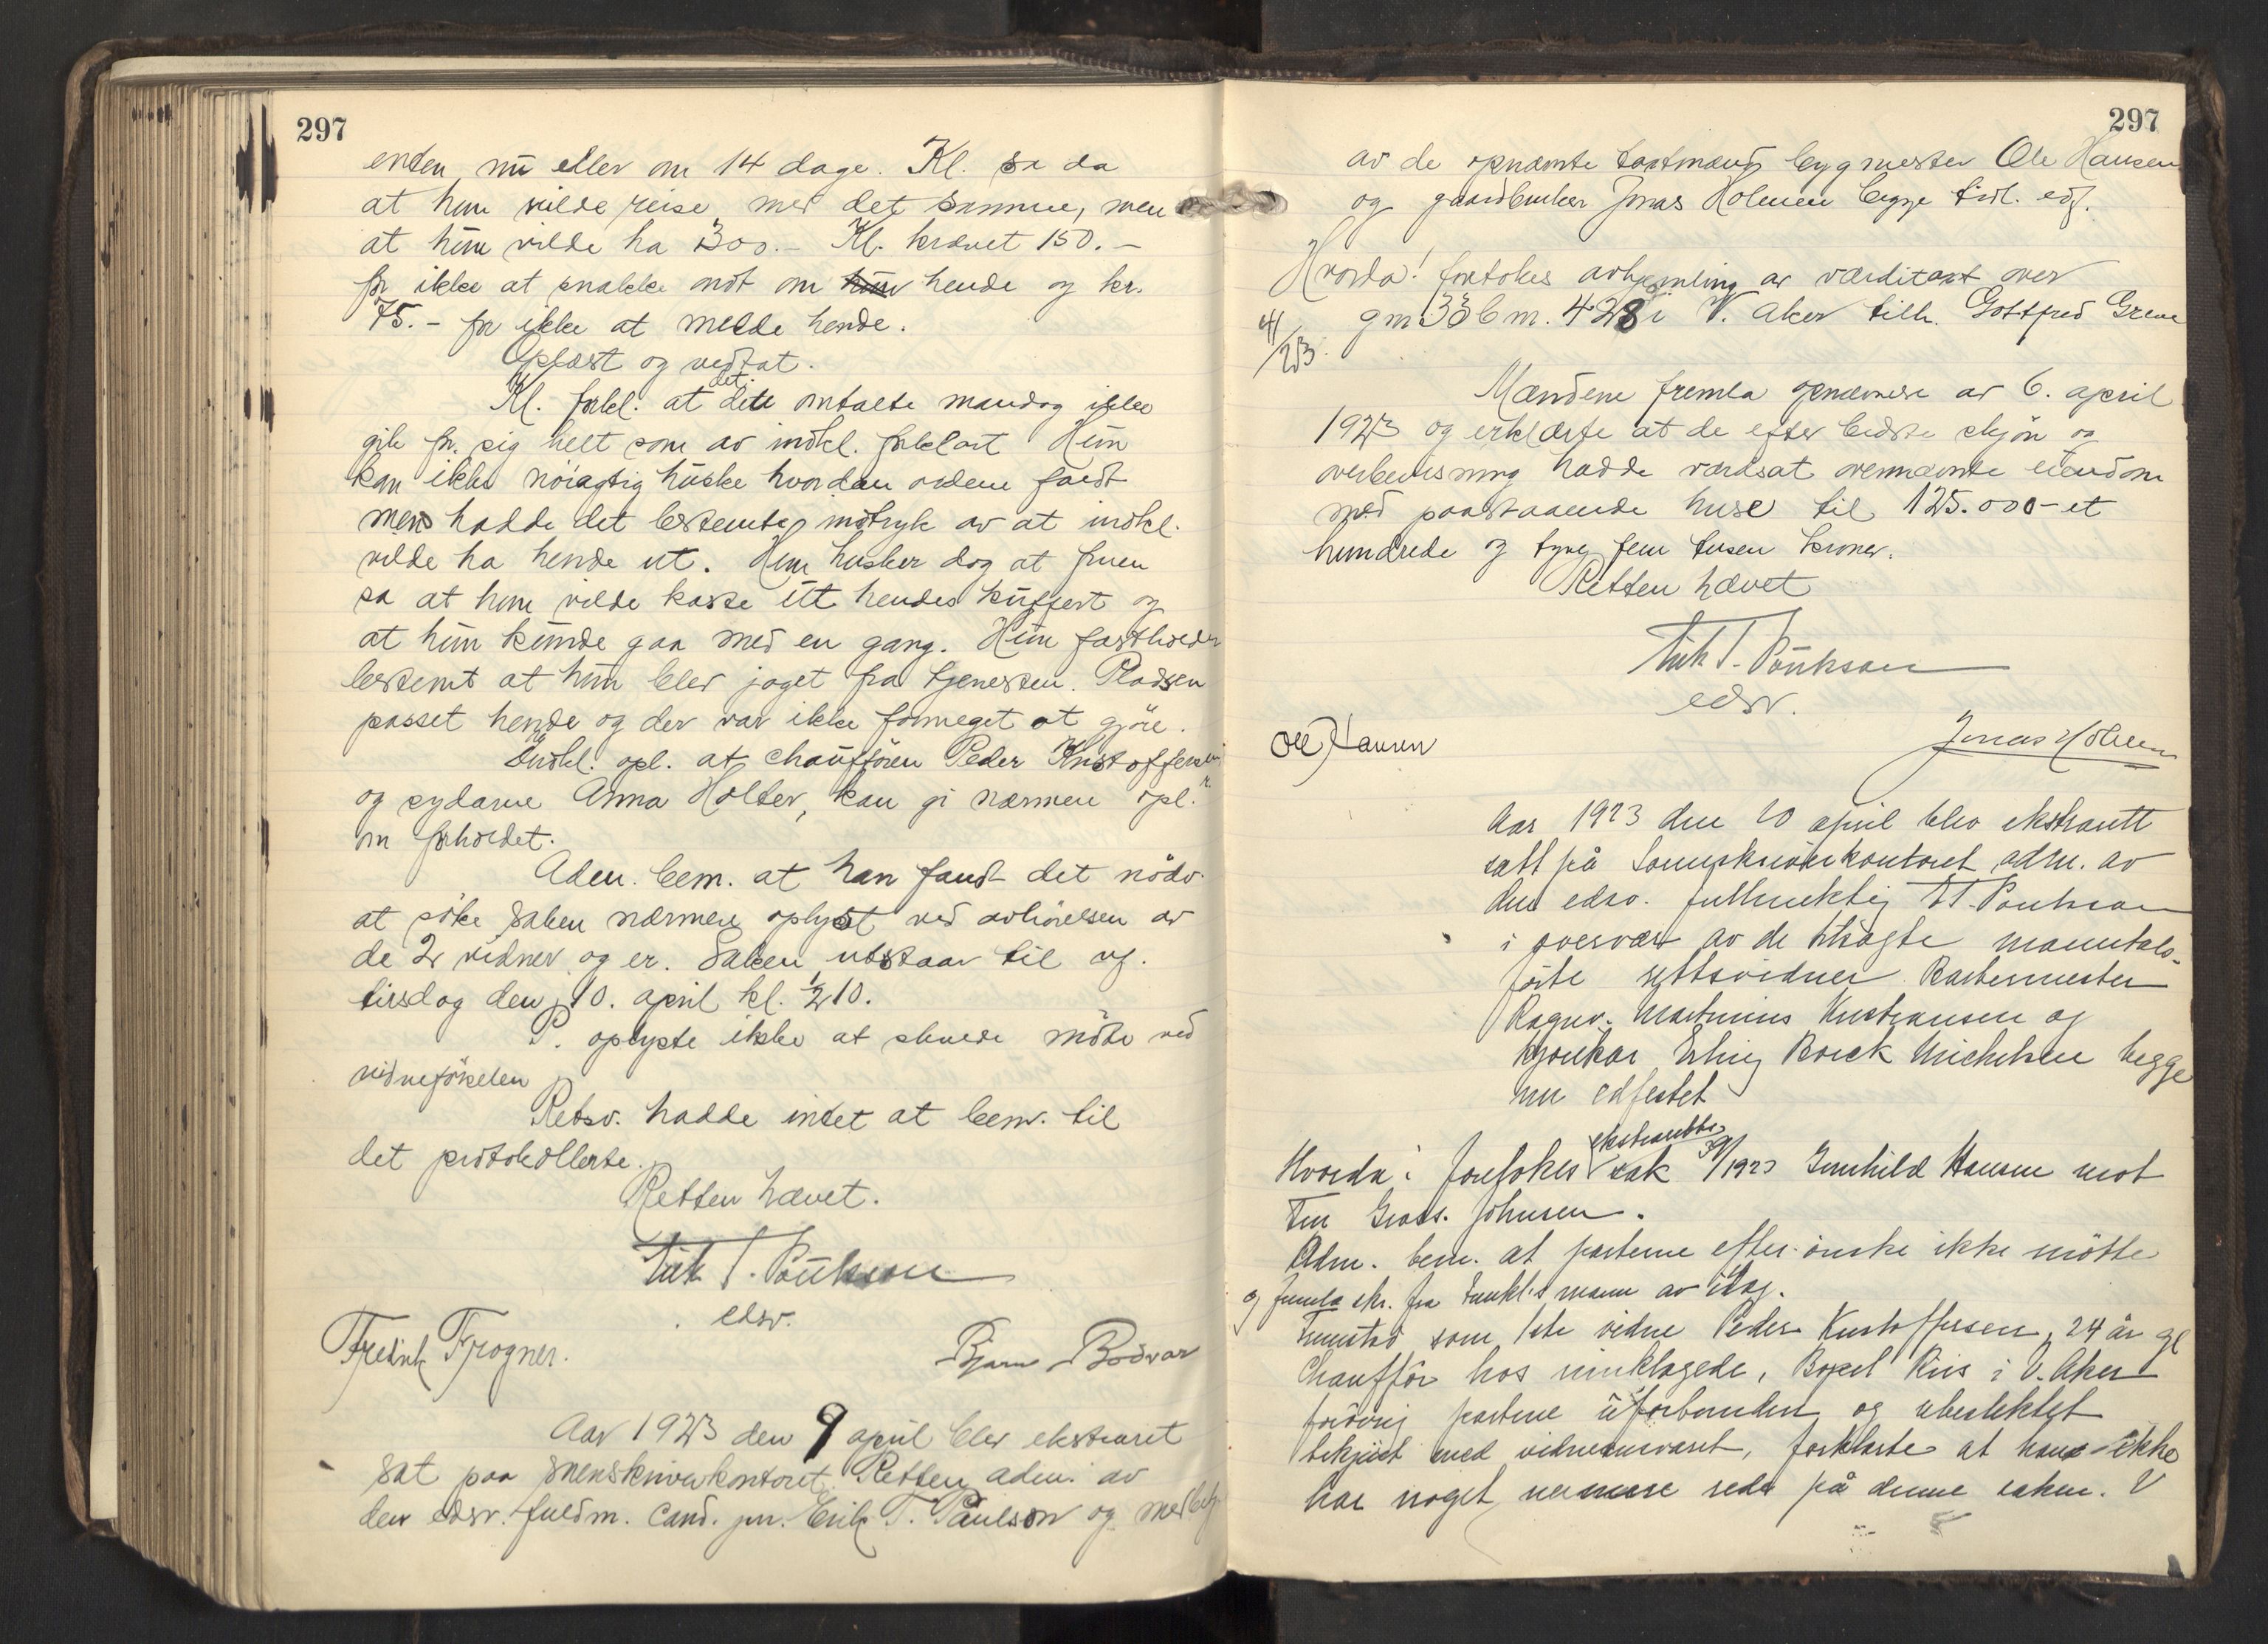 297
enten nu eller om 14 dage. Kl. sa da
at hun vilde reise med det samme, men
at hun vilde ha 300.- Kl. krævet 150.-
for ikke at snakke ondt om hun hende og kr.
75.- for ikke at melde hende.
Oplæst og vedtat.
Kl. forkl. at det dette omtalte mandag ikke
gik for sig helt som av indkl. forklart Hun
kan ikke nöiagtig huske hvordan ordene faldt
men hadde det bestemte indtryk av at indkl.
vilde ha hende ut. Hun husker dog at fruen
sa at hun vilde kaste ut hendes kuffert og
at hun kunde gaa med en gang. Hun fastholder
bestemt at hun blev jaget fra tjenesten. Pladsen
passet hende og der var ikke formeget at gjöre.
Indkl. opl. at chauffören Peder Kristoffersen
og sydame Anna Holter, kan gi nærmere opl.
om forholdet.
Adm. bem. at han fandt det nödv.
at söke saken nærmere oplyst ved avhörelsen av
de 2 vidner og er. Saken utstaar til
tirsdag den 10. april kl. ½10.
P. oplyste ikke at skulde möte ved
vidneförselen
Retsv. hadde intet at bem. til
det protokollerte.
Retten hævet.
Erik T. Paulson
edsv.
Fredrik Frogner.
Bjarne Bödvar
Aar 1923 den 9 april blev ekstraret
sat paa sorenskriverkontoret. Retten adm. av
den edsv. fuldm. cand. jur. Erik T. Paulson og
297
av de opnævnte takstmænd bygmester Ole Hansen
og gaardbruker Jonas Holmen begge tidl. edf.
Hvorda! foretokes avhjemling av værditakst over
gnr 33 bnr. 428 i V. Aker tilh. Gottfred Greve
Mændene fremla opnævnelse av 6. april
1923 og erklærte at de efter bedste skjön og
overbevisning hadde værdsat ovennævnte eiendom
med paastaaende huse til 125.000- et
hundrede og tyve fem tusen kroner.
Retten hævet
Erik T. Paulson
edsv.
Ole Hansen
Jonas Holmen
Aar 1923 den 10 april blev ekstrarett
satt på Sorenskriverkontoret adm. av
den edsv. fullmektig E T. Paulson
i overvær av de tilsagte manntals-
förte rettsvidner Barbermester
Ragnv. Martinius Kristiansen og
Erling Borck Michelsen begge
nu edfestet
Hvorda: foretokes ekstraretts sak 39/1923 Gunhild Hansen mot
Fru Johnsen.
Adm. bem. at parterne efter önske ikke mötte
og fremla skr. fra innkl.s mann av idag.
Fremstod som 1ste vidne Peder Kristoffersen, 24 år gl
Chaufför hos innklagede, Bopel Riis i V. Aker
forövrig partene uforbunden og ubeslektet
bekjent med vidneansvaret, forklarte at han ikke
har noget nermere rede på denne saken. V